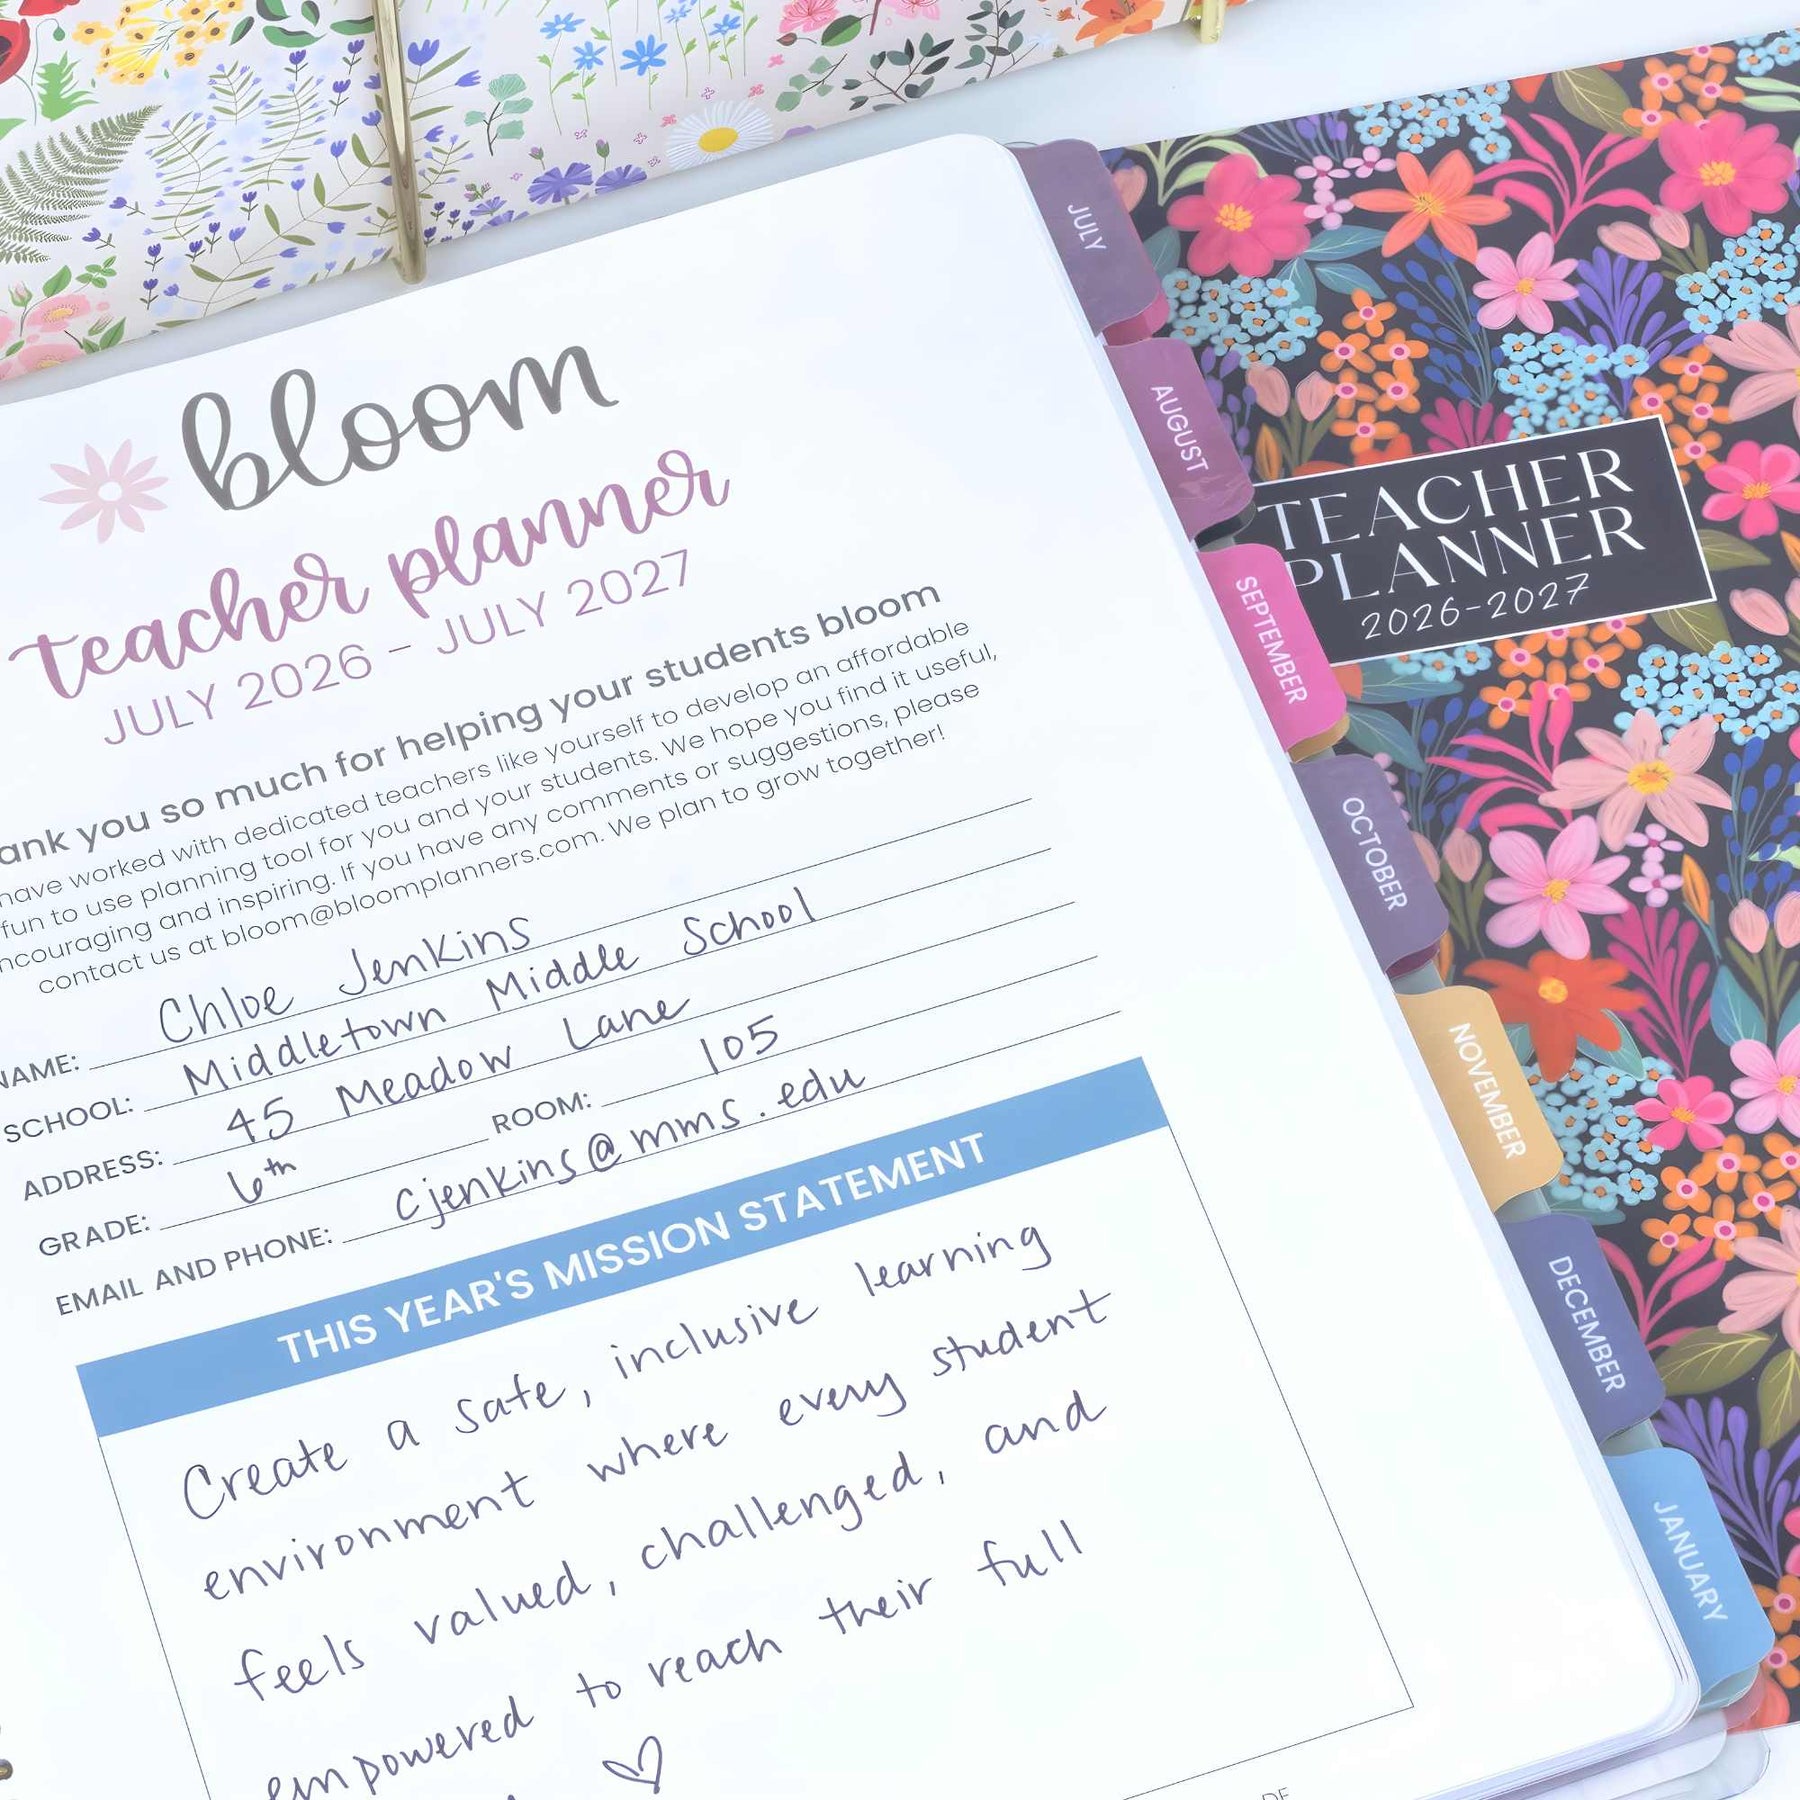 bloom
teacher planner
JULY 2026 - JULY 2027
you so much for helping your students bloom
have worked with dedicated teachers like yourself to develop an affordable
fun to use planning tool for you and your students. We hope you find it useful,
and inspiring. If you have any comments or suggestions, please
contact us at bloom@bloomplanners.com. We plan to grow together!
NAME: Chloe Jenkins
SCHOOL: Middletown Middle School
ADDRESS: 45 Meadow Lane
GRADE: 6th ROOM: 105
EMAIL AND PHONE: cjenkins@mms.edu
THIS YEAR'S MISSION STATEMENT
Create a safe, inclusive learning
environment where every student
feels valued, challenged, and
empowered to reach their full
JULY
AUGUST
SEPTEMBER
OCTOBER
NOVEMBER
DECEMBER
JANUARY
TEACHER
PLANNER
2026-2027